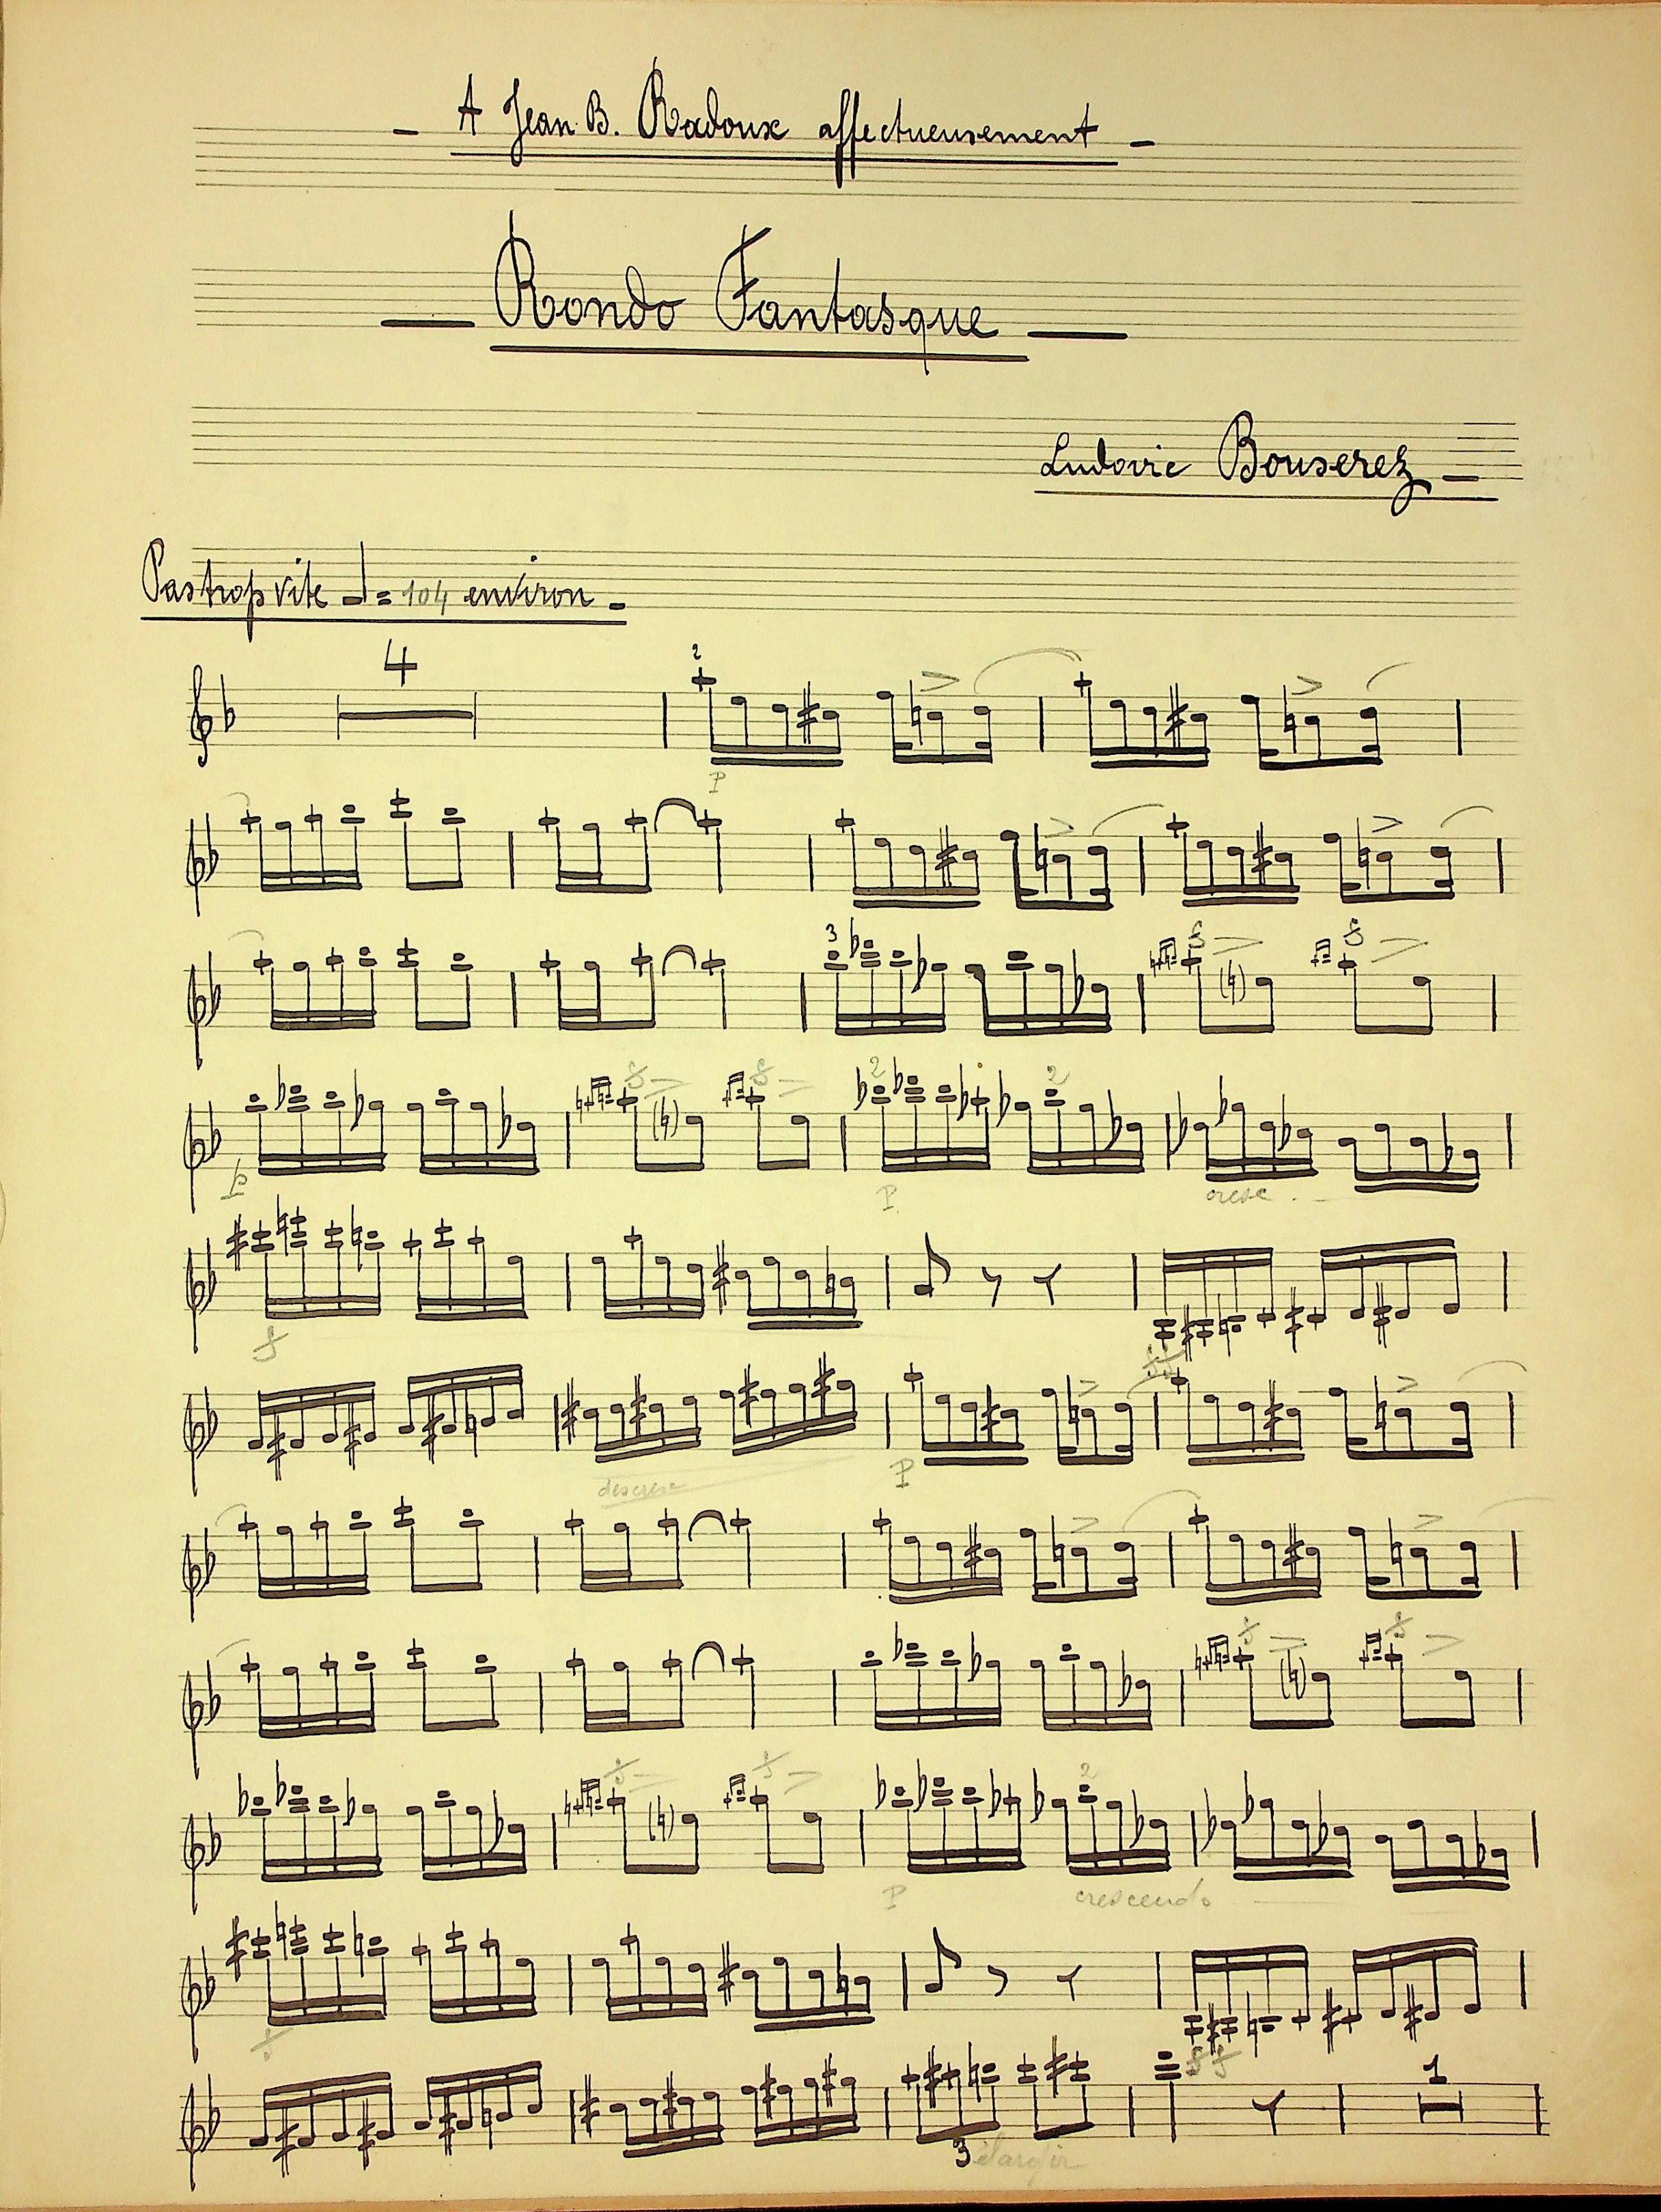 – A Jean B. Radoux affectueusement –
— Rondo Fantasque —
Ludovic Bouserez –
Pas trop vite ♩ = 104 environ –
4
2
P
3 f f
f f 2 2
p P cresc.
f
ff
descresc P
f f
f f 2
P crescendo
f
ff 1
3 élargir